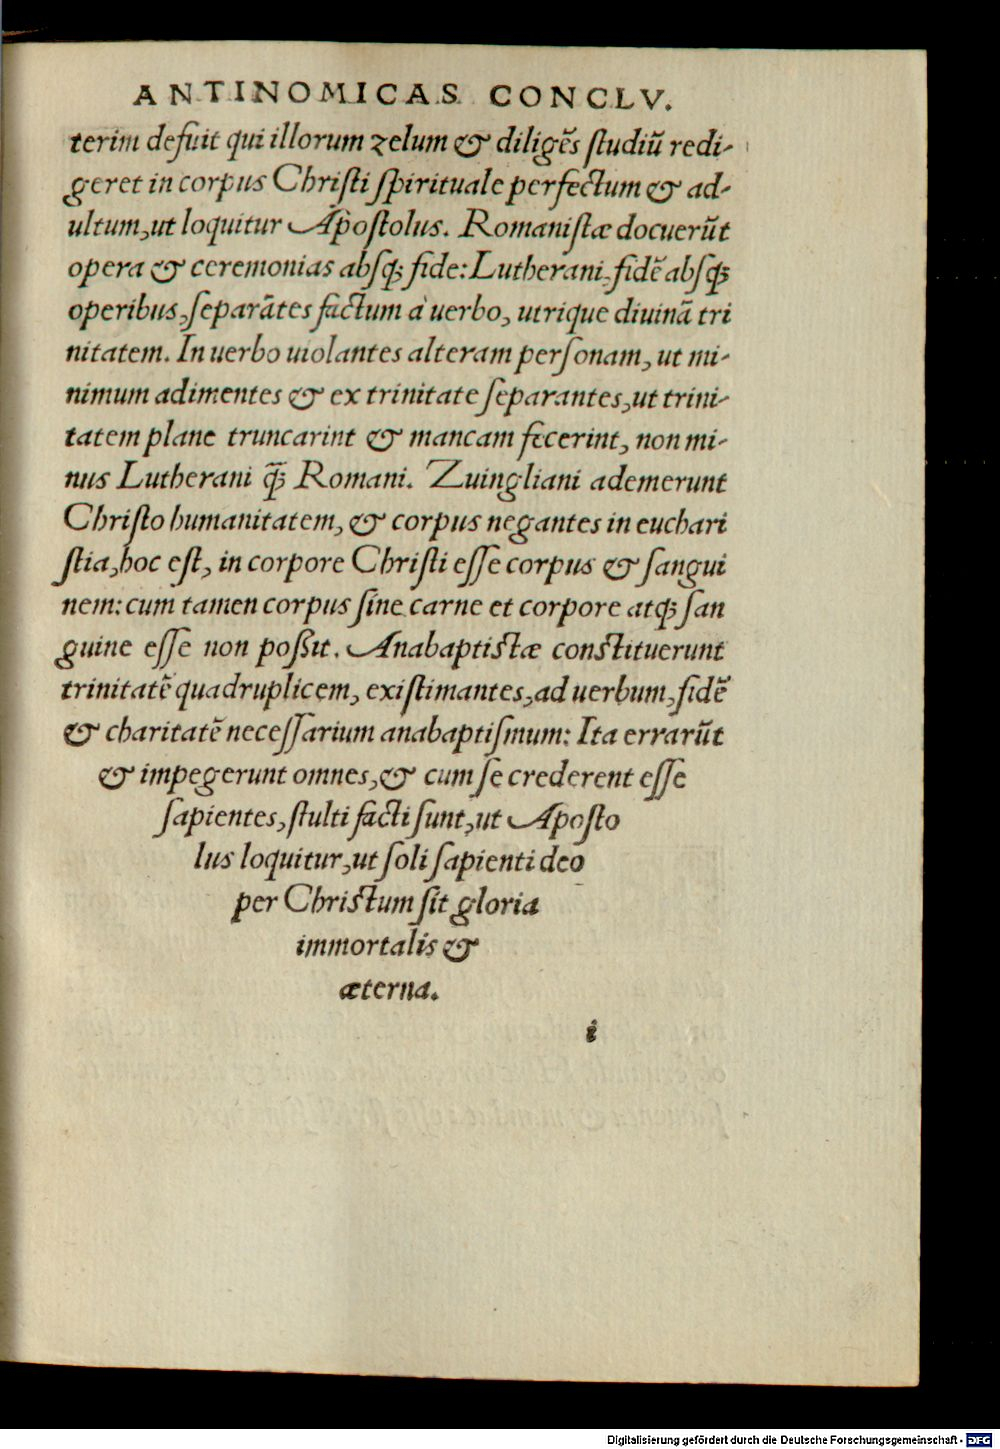 ANTINOMICAS CONCLV.
terim defuit qui illorum zelum & diligẽs ſtudiũ redi-
geret in corpus Chriſti ſpirituale perfectum & ad-
ultum, ut loquitur Apoſtolus. Romaniſtæ docuerũt
opera & ceremonias abſq; fide: Lutherani, fidẽ abſq;
operibus, ſeparãtes factum à uerbo, utrique diuinã tri
nitatem. In uerbo uiolantes alteram perſonam, ut mi-
nimum adimentes & ex trinitate ſeparantes, ut trini-
tatem plane truncarint & mancam fecerint, non mi-
nus Lutherani q̃; Romani. Zuingliani ademerunt
Chriſto humanitatem, & corpus negantes in euchari
ſtia, hoc eſt, in corpore Chriſti eſſe corpus & ſangui
nem: cum tamen corpus ſine carne et corpore atq; ſan
guine eſſe non poßit. Anabaptiſtæ conſtituerunt
trinitatẽ quadruplicem, exiſtimantes, ad uerbum, fidẽ
& charitatẽ neceſſarium anabaptiſmum: Ita errarũt
& impegerunt omnes, & cum ſe crederent eſſe
ſapientes, ſtulti facti ſunt, ut Apoſto
lus loquitur, ut ſoli ſapienti deo
per Chriſtum ſit gloria
immortalis &
æterna.
i
Digitalisierung gefördert durch die Deutsche Forschungsgemeinschaft - DFG